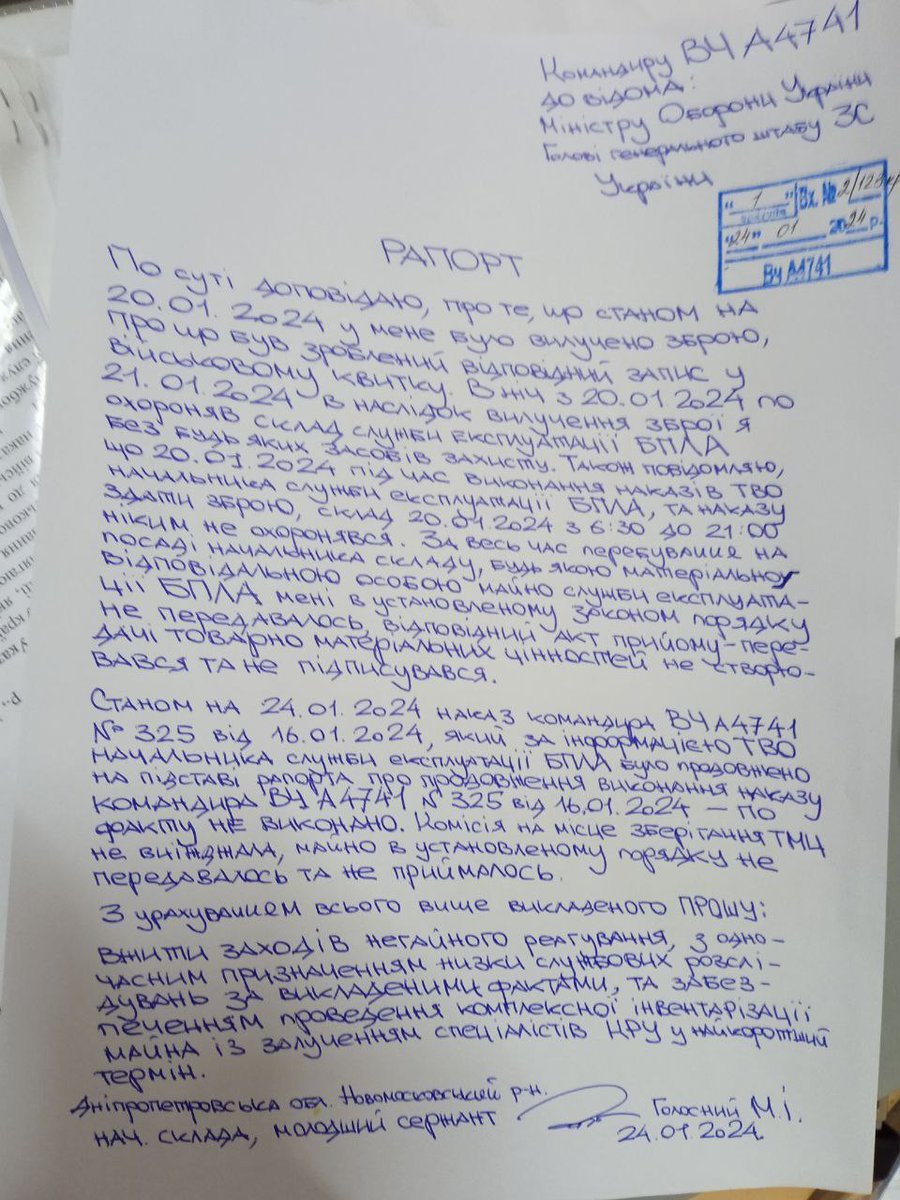 Командиру ВЧ А4741
до відома:
Міністру Оборони України
Голові генерального штабу ЗС
України
"1" Вх. № 2/123
"24" 01 2024 р.
ВЧ А4741
РАПОРТ
По суті доповідаю, про те, що станом на
20.01.2024 у мене було вилучено зброю,
про що був зроблений відповідний запис у
військовому квитку. В ніч з 20.01.2024 по
21.01.2024 в наслідок вилучення зброї я
охороняв склад служби експлуатації БПЛА
без будь яких засобів захисту. Також повідомляю,
що 20.01.2024 під час виконання наказів ТВО
начальника служби експлуатації БПЛА, та наказу
здати зброю, склад 20.01.2024 з 6:30 до 21:00
ніким не охоронявся. За весь час перебування на
посаді начальника складу, будь якою матеріально
відповідальною особою майно служби експлуата-
ції БПЛА мені в установленому законом порядку
не передавалось, відповідний акт прийому-пере-
дачі товарно матеріальних цінностей не створю-
вався та не підписувався.
Станом на 24.01.2024 наказ командира ВЧ А4741
№ 325 від 16.01.2024, який за інформацією ТВО
начальника служби експлуатації БПЛА було продовжено
на підставі рапорта про продовження виконання наказу
командира ВЧ А4741 № 325 від 16.01.2024 — по
факту не виконано. Комісія на місце зберігання ТМЦ
не виїжджала, майно в установленому порядку не
передавалось та не приймалось.
З урахуванням всього вище викладеного ПРОШУ:
вжити заходів негайного реагування, з одно-
часним призначенням низки службових розслі-
дувань за викладеними фактами, та забез-
печенням проведення комплексної інвентарізації
майна із залученням спеціалістів ЦРУ у найкоротший
термін.
Дніпропетровська обл. Новомосковський р-н.
нач. склада, молодший сержант Голосний М.І.
24.01.2024